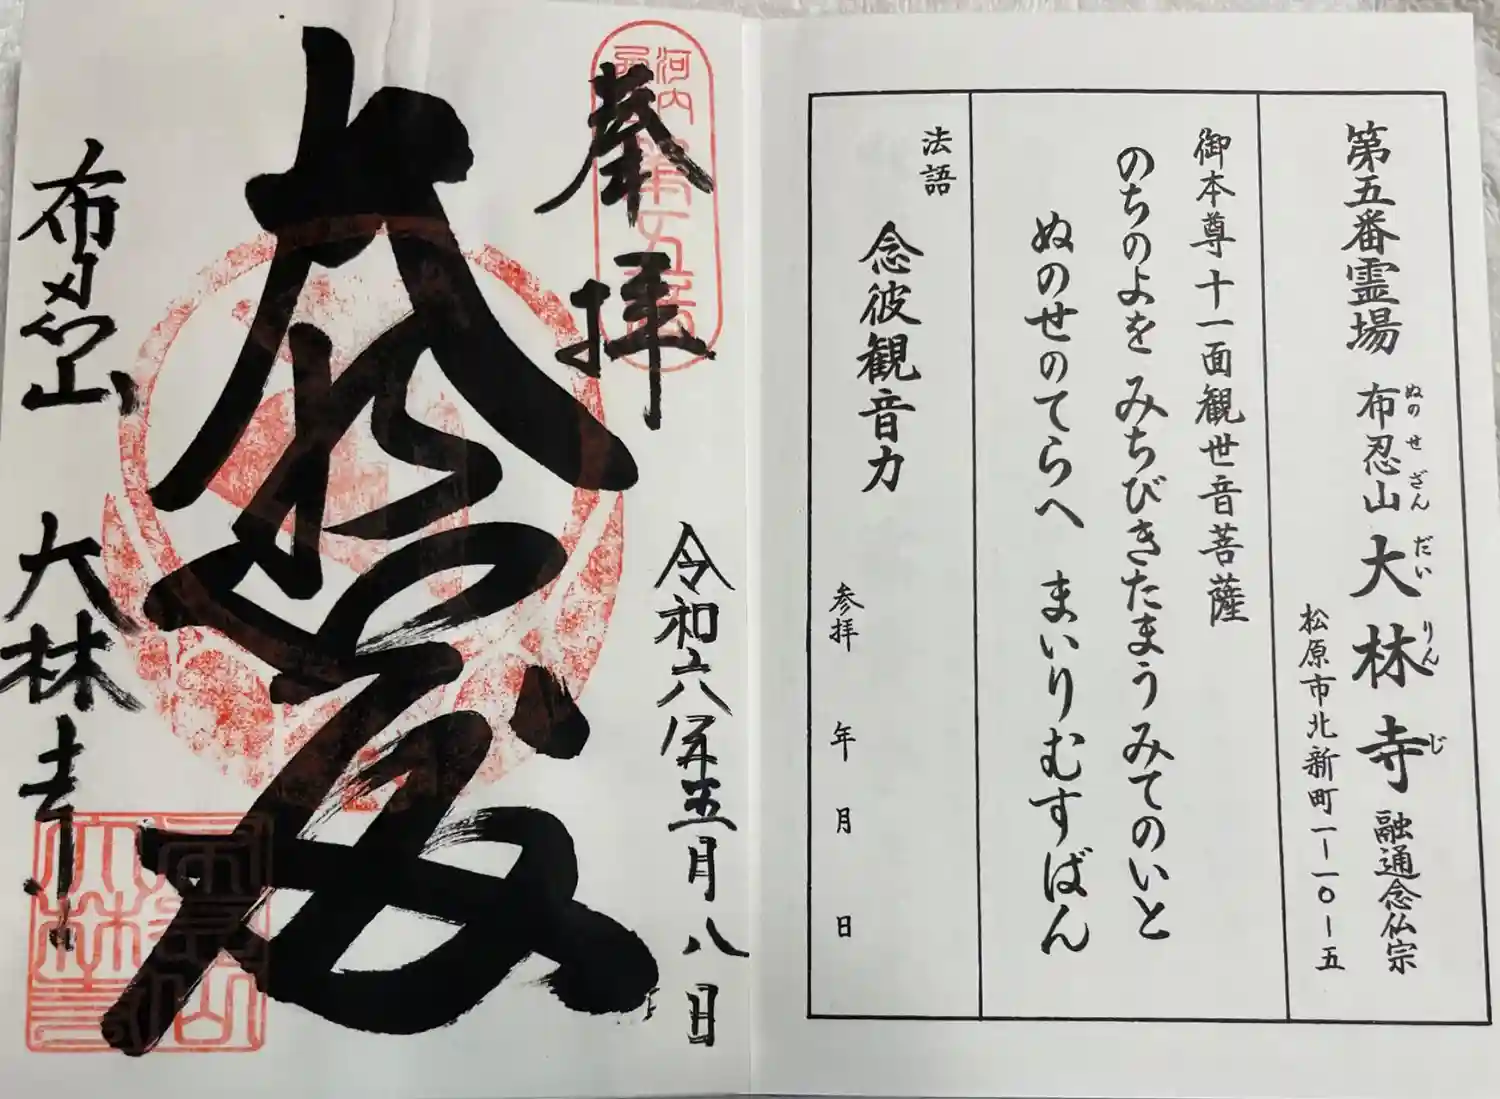 第五番霊場 布忍山 大林寺 融通念仏宗
ぬのせざん だいりんじ
松原市北新町一ー一〇ー五
御本尊 十一面観世音菩薩
のちのよを みちびきたまうみてのいと
ぬのせのてらへ まいりむすばん
法語
念彼観音力
参拝 年 月 日
奉拝
令和六年五月八日
大悲殿
布忍山 大林寺